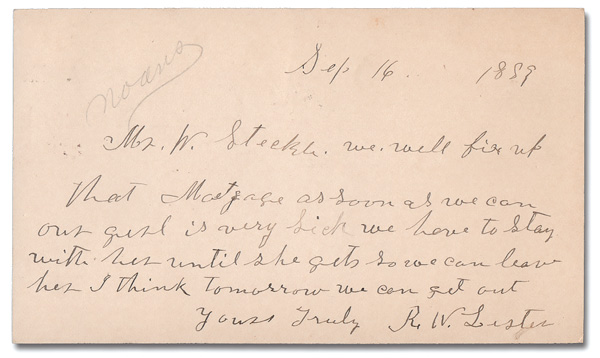 no ans
Sep 16 1889
Mr. W. Steckle. we. will fix up
that Mortgage as soon as we can
our gurl is very sick we have to stay
with her until she gets so we can leave
her I think tomorrow we can get out
Yours Truly R. W. Lester